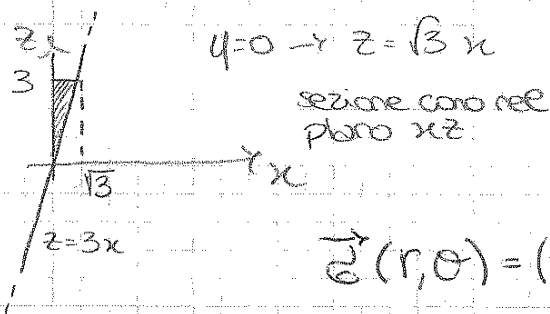 z
y=0 → z=√3 x
3
sezione cono nel
piano xz
x
√3
z=3x
(r,θ) = (